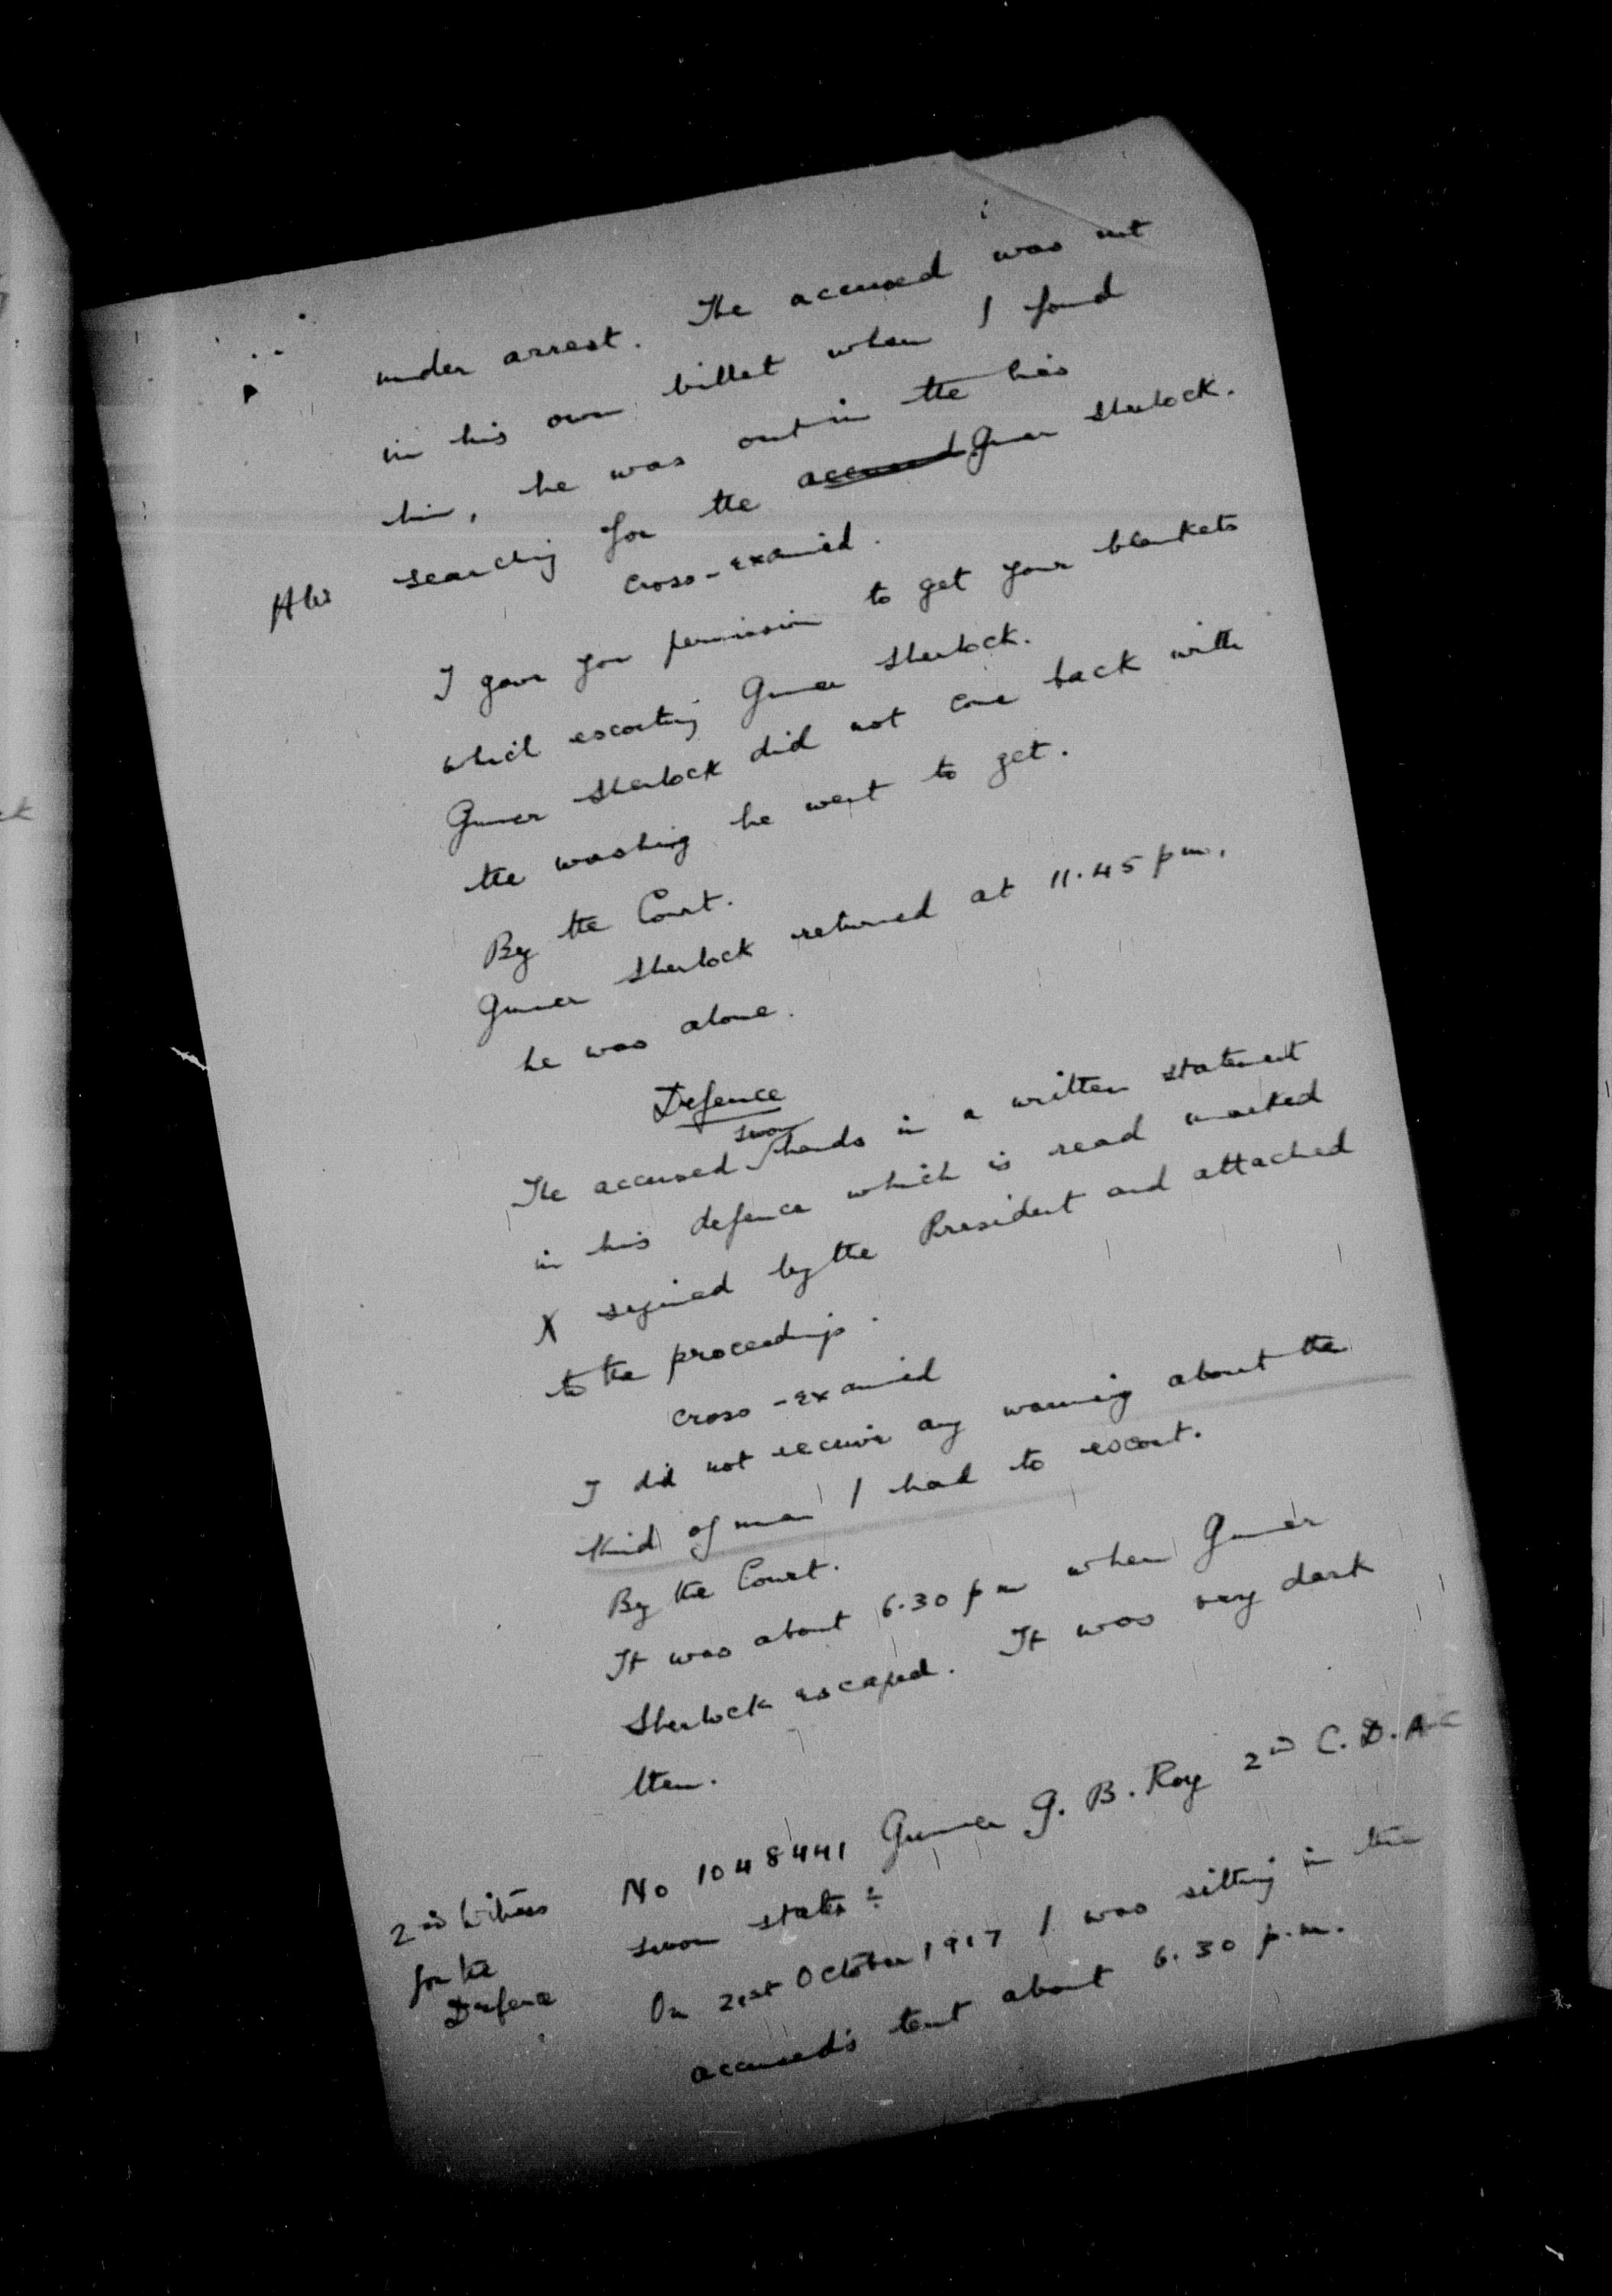 under arrest. The accused was not
in his own billet when I found
him, he was out in the lines
HW searching for the accused Gunner Sherlock.
cross-examined.
I gave you permission to get your blankets
while escorting Gunner Sherlock.
Gunner Sherlock did not come back with
the washing he went to get.
By the Court.
Gunner Sherlock returned at 11.45 pm.
he was alone.
Defence
sworn
The accused hands in a written statement
in his defence which is read marked
X signed by the President and attached
to the proceedings.
cross-examined
I did not receive any warning about the
kind of man I had to escort.
By the Court.
It was about 6.30 pm when Gunner
Sherlock escaped. It was very dark
then.
2nd Witness
for the
Defence
No 1048441 Gunner G. B. Roy 2nd C.D.A.C
sworn states:
On 21st October 1917 I was sitting in the
accused's tent about 6.30 p.m.